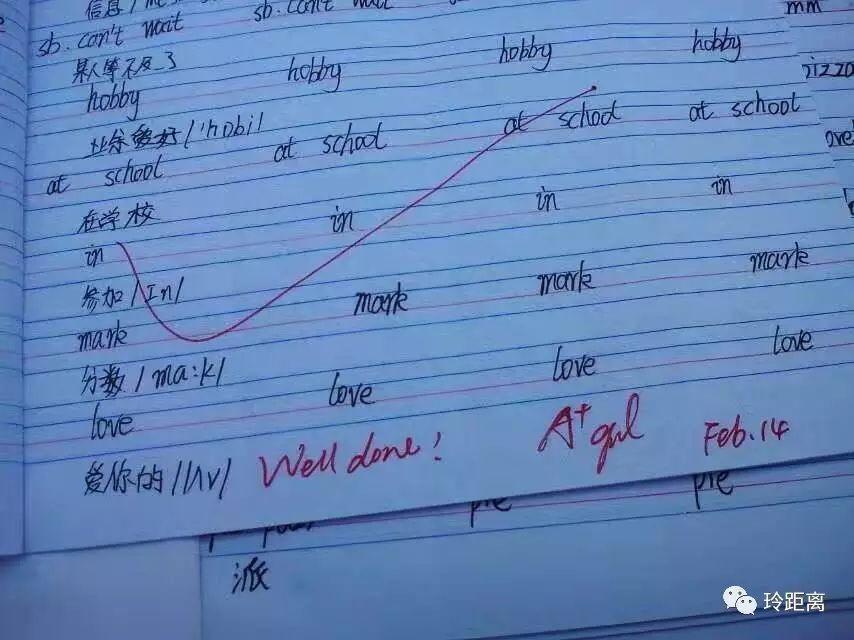 信息
sb. can't wait sb. can't wait
某人等不及了
hobby hobby hobby hobby
业余爱好 /'hobi/
at school at school at school at school
在学校
in in in in
参加 /In/
mark mark mark mark
分数 /ma:k/
love love love love
爱你的 /lʌv/ Well done! A+ Feb.14
pie pie
派
玲距离